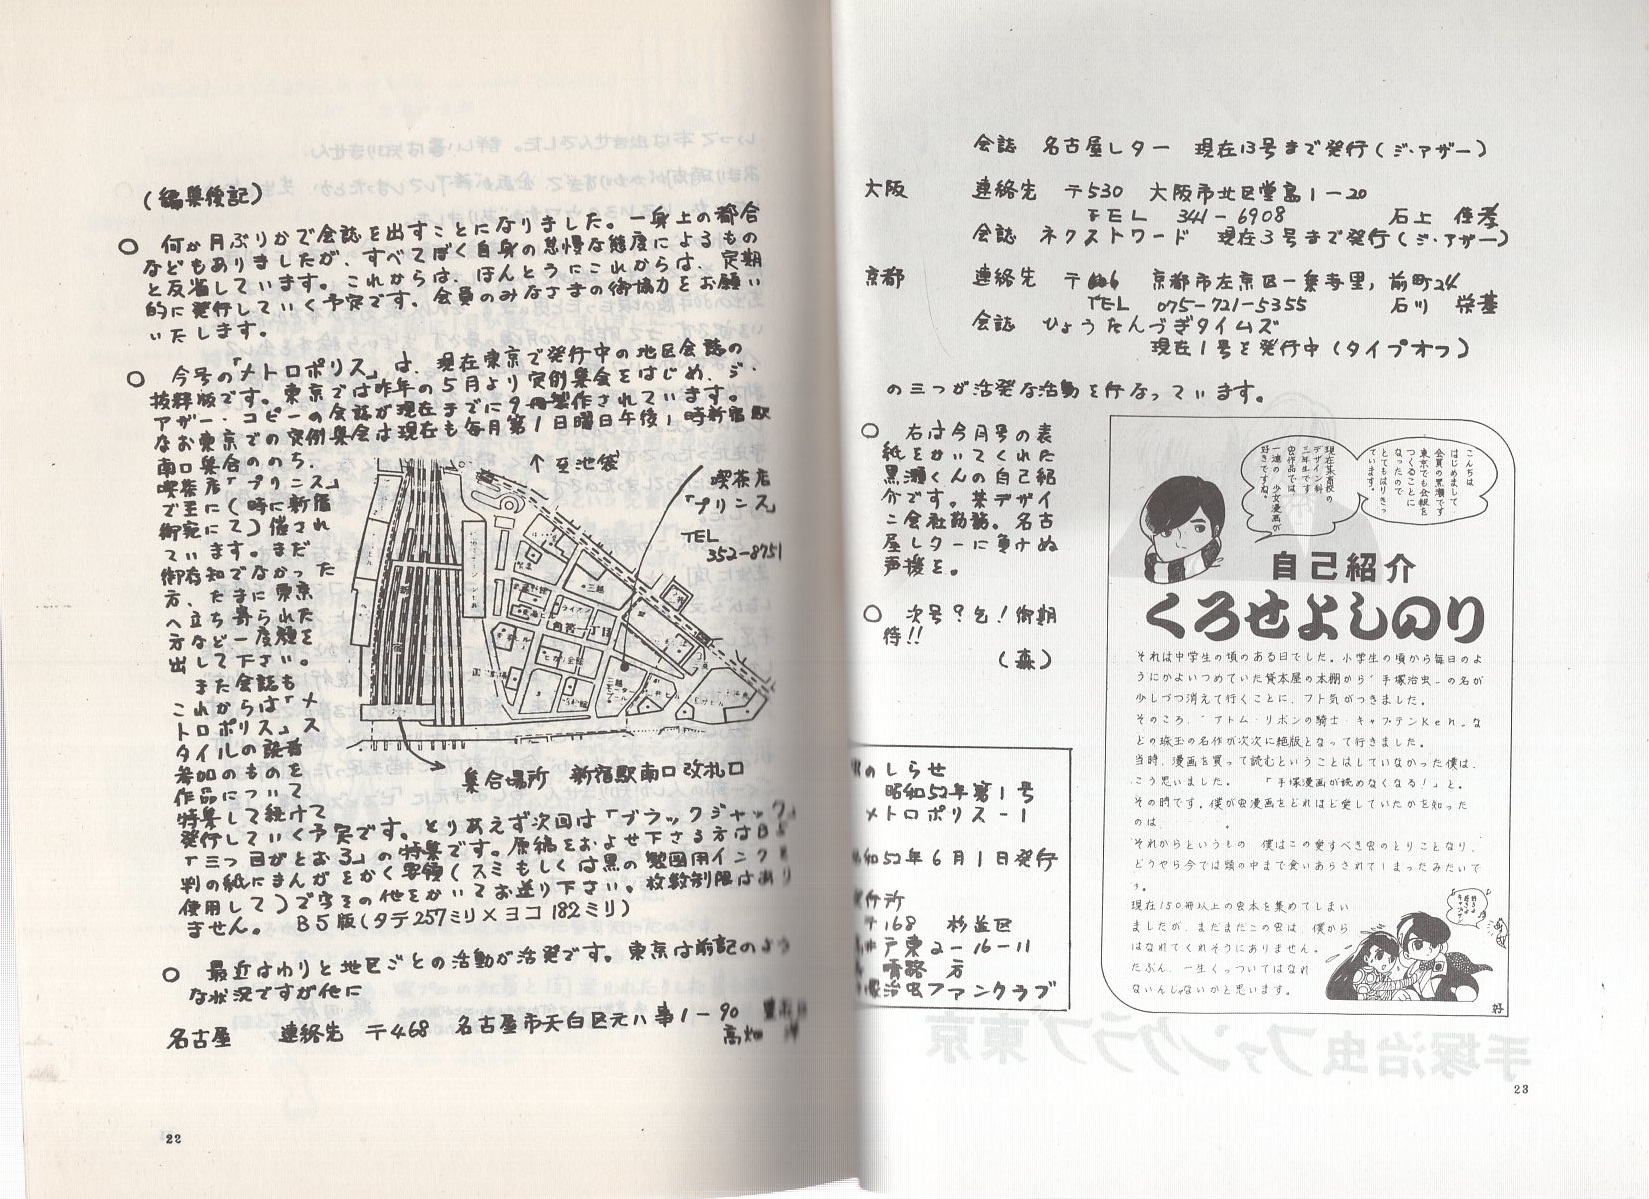 (編集後記)
○ 何か月ぶりかで会誌を出すことになりました。一身上の都合
などもありましたが、すべてぼく自身の怠慢な態度によるもの
と反省しています。これからは、ほんとうにこれからは、定期
的に発行していく予定です。会員のみなさまの御協力をお願い
いたします。
○ 今号の「メトロポリス」は、現在東京で発行中の地区会誌の
抜粋版です。東京では昨年の5月より定例集会をはじめ、ジ・
アザー・コピーの会誌が現在までに9冊製作されています。
なお東京での定例集会は現在も毎月第1日曜日午後1時新宿駅
南口集合ののち、
喫茶店「プリンス」
で主に(時に新宿
御宛にて)催され
ています。まだ
御存知でなかった
方、たまに東京
へ立ち寄られた
方など一度顔を
出して下さい。
また会誌も
これからは「メ
トロポリス」ス
タイルの
参加のものを
作品について
特集して続けて
発行していく予定です。とりあえず次回は「ブラックジャック」
「三つ目がとおる」の特集です。原稿をおよせ下さる方はB5
判の紙にまんがをかく要領(スミもしくは黒の製図用インク
使用して)で字その他をかいてお送り下さい。枚数制限はあり
ません。 B5版(タテ257ミリ×ヨコ182ミリ)
↑至池袋
喫茶店
「プリンス」
TEL
352-8751
三越
角筈一丁目
集合場所 新宿駅南口改札口
○ 最近はわりと地区ごとの活動が活発です。東京は前記のよう
な状況ですが他に
名古屋 連絡先 〒468 名古屋市天白区元八事1-90
高畑
22
会誌 名古屋レター 現在13号まで発行(ジ・アザー)
大阪 連絡先 〒530 大阪市北区堂島1-20
TEL 341-6908 石上
会誌 ネクストワード 現在3号まで発行(ジ・アザー)
京都 連絡先 〒606 京都市左京区一乗寺里,前町24
TEL 075-721-5355 石川 栄基
会誌 ひょうたんつぎタイムズ
現在1号を発行中(タイプオフ)
の三つが活発な活動を行なっています。
○ 右は今月号の表
紙をかいてくれた
黒瀬くんの自己紹
介です。某デザイ
ン会社勤務。名古
屋レターに負けぬ
声援を。
○ 次号?乞!御期
待!!
(森)
のしらせ
昭和52年第1号
メトロポリス-1
和52年6月1日発行
発行所
〒168 杉並区
井戸東2-16-11
晴路方
塚治虫ファンクラブ
こんちは
はじめまして
会員の黒瀬です
東京でも会報を
つくることに
なったので
とてもはりきっ
ています。
現在某高校の
デザイン科
三年生です
虫作品では
一連の少女漫画が
好きですね。
自己紹介
くろせよしのり
それは中学生の頃のある日でした。小学生の頃から毎日のよ
うにかよいつめていた貸本屋の本棚から"手塚治虫"の名が
少しづつ消えて行くことに、フト気がつきました。
そのころ、"アトム・リボンの騎士・キャプテンKen"な
どの珠玉の名作が次次に絶版となって行きました。
当時、漫画を買って読むということはしていなかった僕は、
こう思いました。 「手塚漫画が読めなくなる!」と。
その時です。僕が虫漫画をどれほど愛していたかを知った
のは・・・・・・。
それからというもの 僕はこの愛すべき虫のとりことなり、
どうやら今では頭の中まで食いあらされてしまったみたいで
す。
現在150冊以上の虫本を集めてしまい
ましたが、まだまだこの虫は、僕から
はなれてくれそうにありません。
たぶん、一生くっついてはなれ
ないんじゃないかと思います。
23